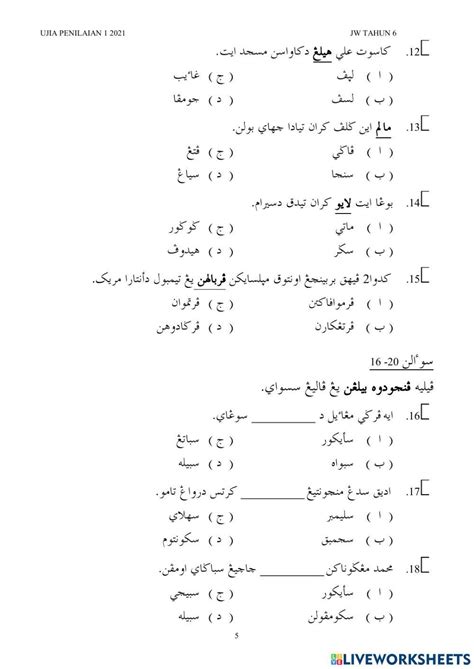 UJIA PENILAIAN 1 2021 JW TAHUN 6
12. كاسوت علي هيلڠ دكاواسن مسجد ايت.
( ا ) ليڤ ( ج ) غاءيب
( ب ) لسڤ ( د ) جومڤا
13. مالم اين ݢلڤ كران تيادا چهاي بولن.
( ا ) ڤاݢي ( ج ) ڤتڠ
( ب ) سنجا ( د ) سياڠ
14. بوڠا ايت لايو كران تيدق دسيرام.
( ا ) ماتي ( ج ) ݢوݢور
( ب ) سݢر ( د ) هيدوڤ
15. كدوا2 ڤيهق بربينچڠ اونتوق مڽلسايكن ڤربالهن يڠ تيمبول دأنتارا مريك.
( ا ) ڤرموافاكتن ( ج ) ڤرتموان
( ب ) ڤرتڠكارن ( د ) ڤرݢادوهن
سوءالن 20- 16
ڤيليه ڤنجودوه بيلڠن يڠ ڤاليڠ سسواي.
16. ايه ڤرݢي مڠاءيل د __________ سوڠاي.
( ا ) سأيكور ( ج ) سباتڠ
( ب ) سبواه ( د ) سبيله
17. اديق سدڠ منچونتيڠ __________ كرتس درواڠ تامو.
( ا ) سليمبر ( ج ) سهلاي
( ب ) سجمبق ( د ) سكونتوم
18. محمد مڠݢوناكن __________ چاچيڠ سباݢاي اومڤن.
( ا ) سأيكور ( ج ) سبيجي
( ب ) سكومڤولن ( د ) سبيله
5
LIVEWORKSHEETS